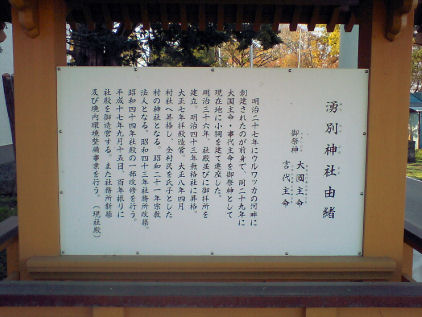 湧別神社由緒
御祭神 大國主命
言代主命
明治二十七年にウルワッカの河畔に
創建されたのが前身で、同二十九年に
大国主命・事代主命を御祭神として
現在地に小祠を建て遷座した。
明治三十六年、社殿並びに御拝所を
建立。明治四十三年無格社に昇格。
大正七年拝殿造営。大正八年四月
村社へ昇格し、全村民を氏子とした
村の神社となる。昭和二十一年宗教
法人となる。昭和四十三年社務所改築。
昭和四十四年社殿の一部改修を行う。
平成十七年九月十五日、百年振りに
社殿を御造営する。また社務所新築
及び境内環境整備事業を行う。（現社殿）